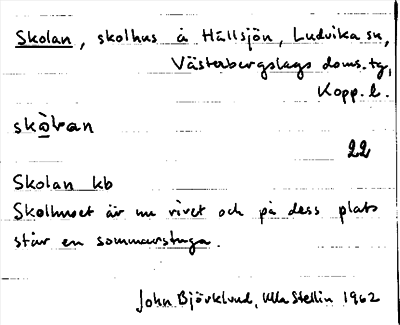 Skolan, skolhus å Hållsjön, Ludvika sn,
Västerbergslags doms. tg,
Kopp. l.
22
Skolan kb
Skolhuset är nu rivet och på dess plats
står en sommarstuga.
John Björklund, Ulla Stellin 1962